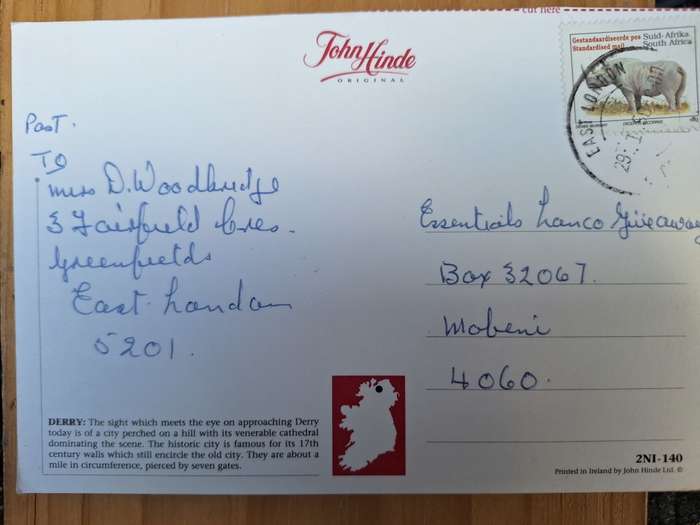 cut here
John Hinde
ORIGINAL
Gestandaardiseerde pos Suid-Afrika
Standardised mail South Africa
EAST LONDON
29
Post.
To
Miss D. Woodbridge
3 Fairfield Cres.
Greenfields
East London
5201.
Essentials Lanco Giveaway
Box 32067.
Mobeni
4060.
DERRY: The sight which meets the eye on approaching Derry
today is of a city perched on a hill with its venerable cathedral
dominating the scene. The historic city is famous for its 17th
century walls which still encircle the old city. They are about a
mile in circumference, pierced by seven gates.
2NI-140
Printed in Ireland by John Hinde Ltd. ©